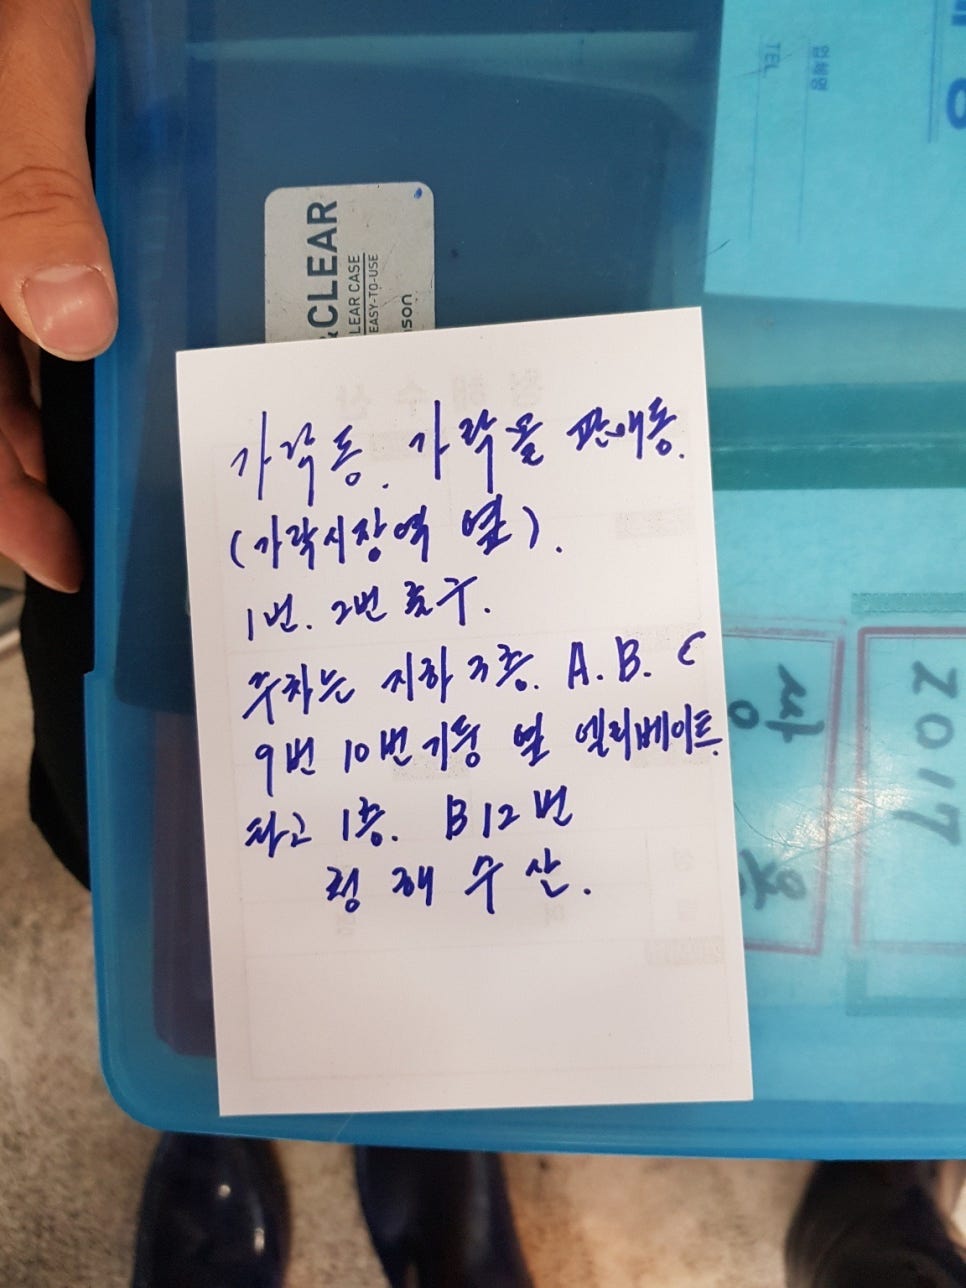 &CLEAR
LEAR CASE
EASY-TO-USE
son
업체명
TEL.
가락동. 가락몰 판매동.
(가락시장역 옆).
1번. 2번 출구.
주차는 지하 3층. A. B. C
9번 10번 기둥 옆 엘리베이트
타고 1층. B12번
청해수산.
청해수산
2017